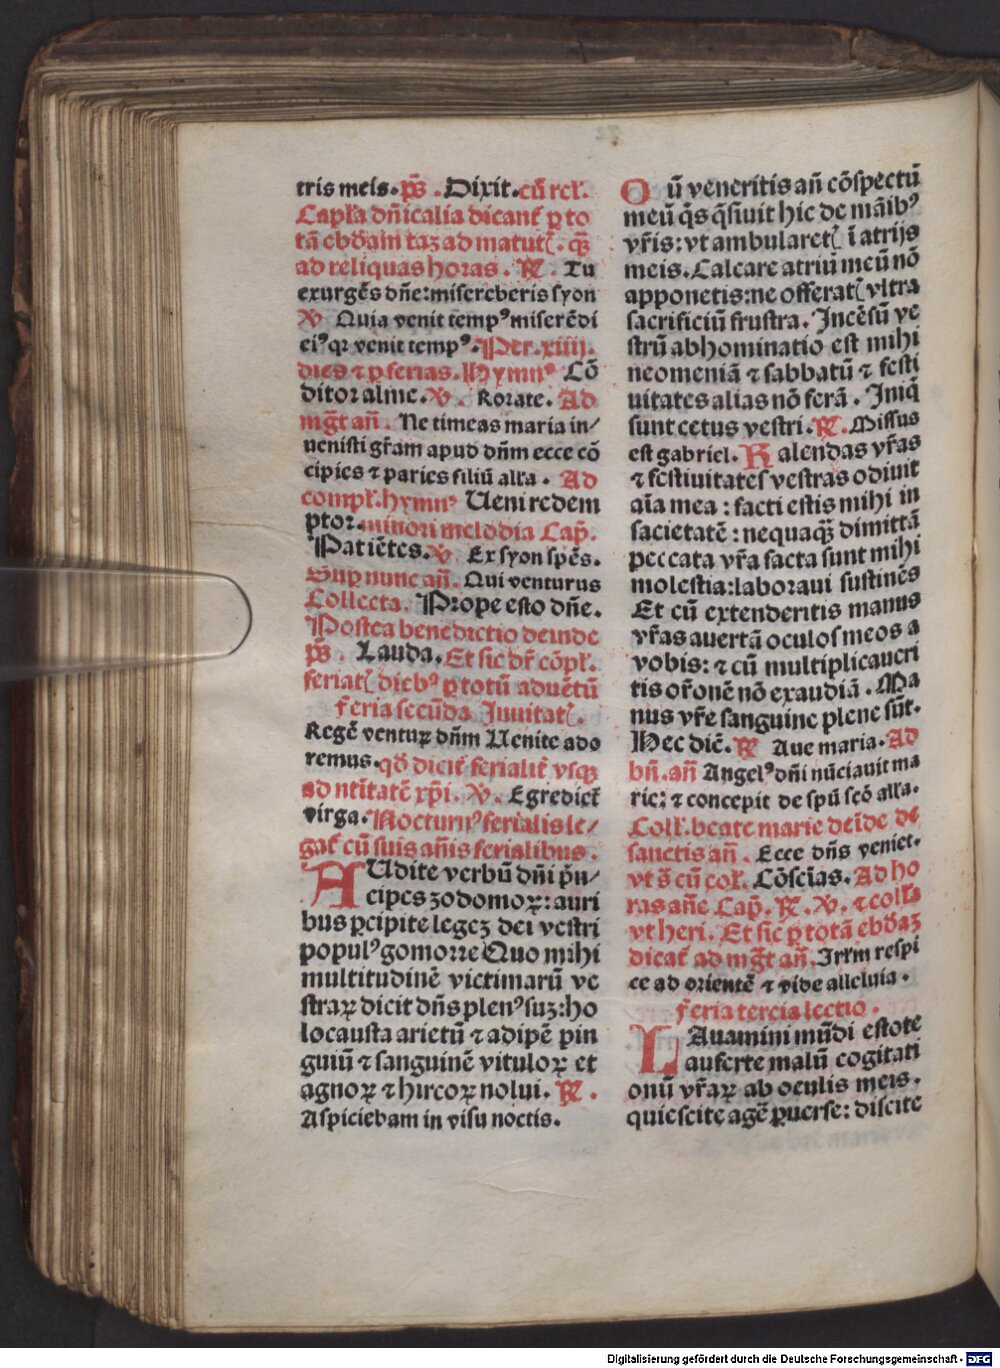 tris meis. p̄s . Dixit. cū rel̄.
Capl'a dn̄icalia dicant̄ ꝑ to
tā ebd̄am tā ad matut̄. qꝫ
ad reliquas horas . R̄. Tu
exurgēs dn̄e: misereberis syon
V Quia venit tempꝰ miserēdi
eiꝰ qꝛ venit tempꝰ. Per .xiiij.
dies ⁊ ꝑ ferias. Hymnꝰ Cō
ditor alme. V. Rorate. Ad
mḡt an̄ . Ne timeas maria in/
uenisti gr̄am apud dn̄m ecce cō
cipies ⁊ paries filiū all'a . Ad
compl̄. hymnꝰ Ueni redem
ptor. minori melodia Cap̄.
Patiētes. V Ex syon spēs.
Suꝑ nunc an̄. Qui venturus
Collecta. Prope esto dn̄e.
Postea benedictio deinde
p̄s . Lauda. Et sic dr̄ cōpl̄.
feriat̄ diebꝰ ꝑ totū aduētū
Feria secūda Inuitat̄.
Regē ventuꝝ dn̄m Uenite ado
remus. qd̄ dicit̄ ferialit̄ vsqꝫ
ad nt̄itatē xp̄i. V. Egrediet̄
virga. Nocturnꝰ ferialis le/
gat̄ cū suis an̄is ferialibus .
AUdite verbū dn̄i pn̄/
cipes zodomoꝝ: auri
bus ꝑcipite legeꝫ dei vestri
populꝰ gomorre Quo mihi
multitudinē victimarū ve
straꝝ dicit dn̄s plenꝰ suꝫ: ho
locausta arietū ⁊ adipē pin
guiū ⁊ sanguinē vituloꝝ et
agnoꝝ ⁊ hircoꝝ nolui. R̄ .
Aspiciebam in visu noctis.
Cū veneritis an̄ cōspectū
meū q̄s q̄siuit hic de māibꝰ
vr̄is: vt ambularet̄ ī atrijs
meis. Calcare atriū meū nō
apponetis: ne offerat̄ vltra
sacrificiū frustra. Incēsū ve
strū abhominatio est mihi
neomeniā ⁊ sabbatū ⁊ festi
uitates alias nō ferā . Iniq̄
sunt cetus vestri. R̄. Missus
est gabriel. Kalendas vr̄as
⁊ festiuitates vestras odiuit
aīa mea : facti estis mihi in
sacietatē : nequaqꝫ dimittā
peccata vr̄a facta sunt mihi
molestia: laboraui sustinēs
Et cū extenderitis manus
vr̄as auertā oculos meos a
vobis: ⁊ cū multiplicaueri
tis or̄onē nō exaudiā . Ma
nus vr̄e sanguine plene sūt.
Hec diē. R̄ Aue maria. Ad
bn̄. an̄ Angelꝰ dn̄i nūciauit ma
rie: ⁊ concepit de spū scō all'a.
Coll̄. beate marie deīde de
sanctis an̄ . Ecce dn̄s veniet.
vt s̄ cū col̄. Cōsciās. Ad ho
ras an̄e Cap̄. R̄. V. ⁊ coll'a
vt heri. Et sic ꝑ totā ebd̄aꝫ
dicat̄ ad mḡt an̄. Irl'm respi
ce ad orientē ⁊ vide alleluia .
Feria tercia lectio .
LAuamini mūdi estote
auferte malū cogitati
onū vr̄aꝝ ab oculis meis.
quiescite agē ꝑuerse: discite
Digitalisierung gefördert durch die Deutsche Forschungsgemeinschaft - DFG